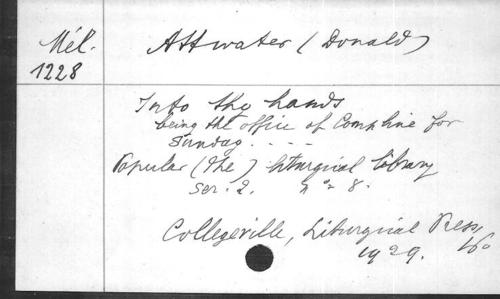 Mél.
1228
Attwater (Donald)
Into thy hands
being the office of Compline for
Sunday. . . .
Popular (the) liturgical library
ser. 2. n° 8.
Collegeville, Liturgical Press,
1929. 16o